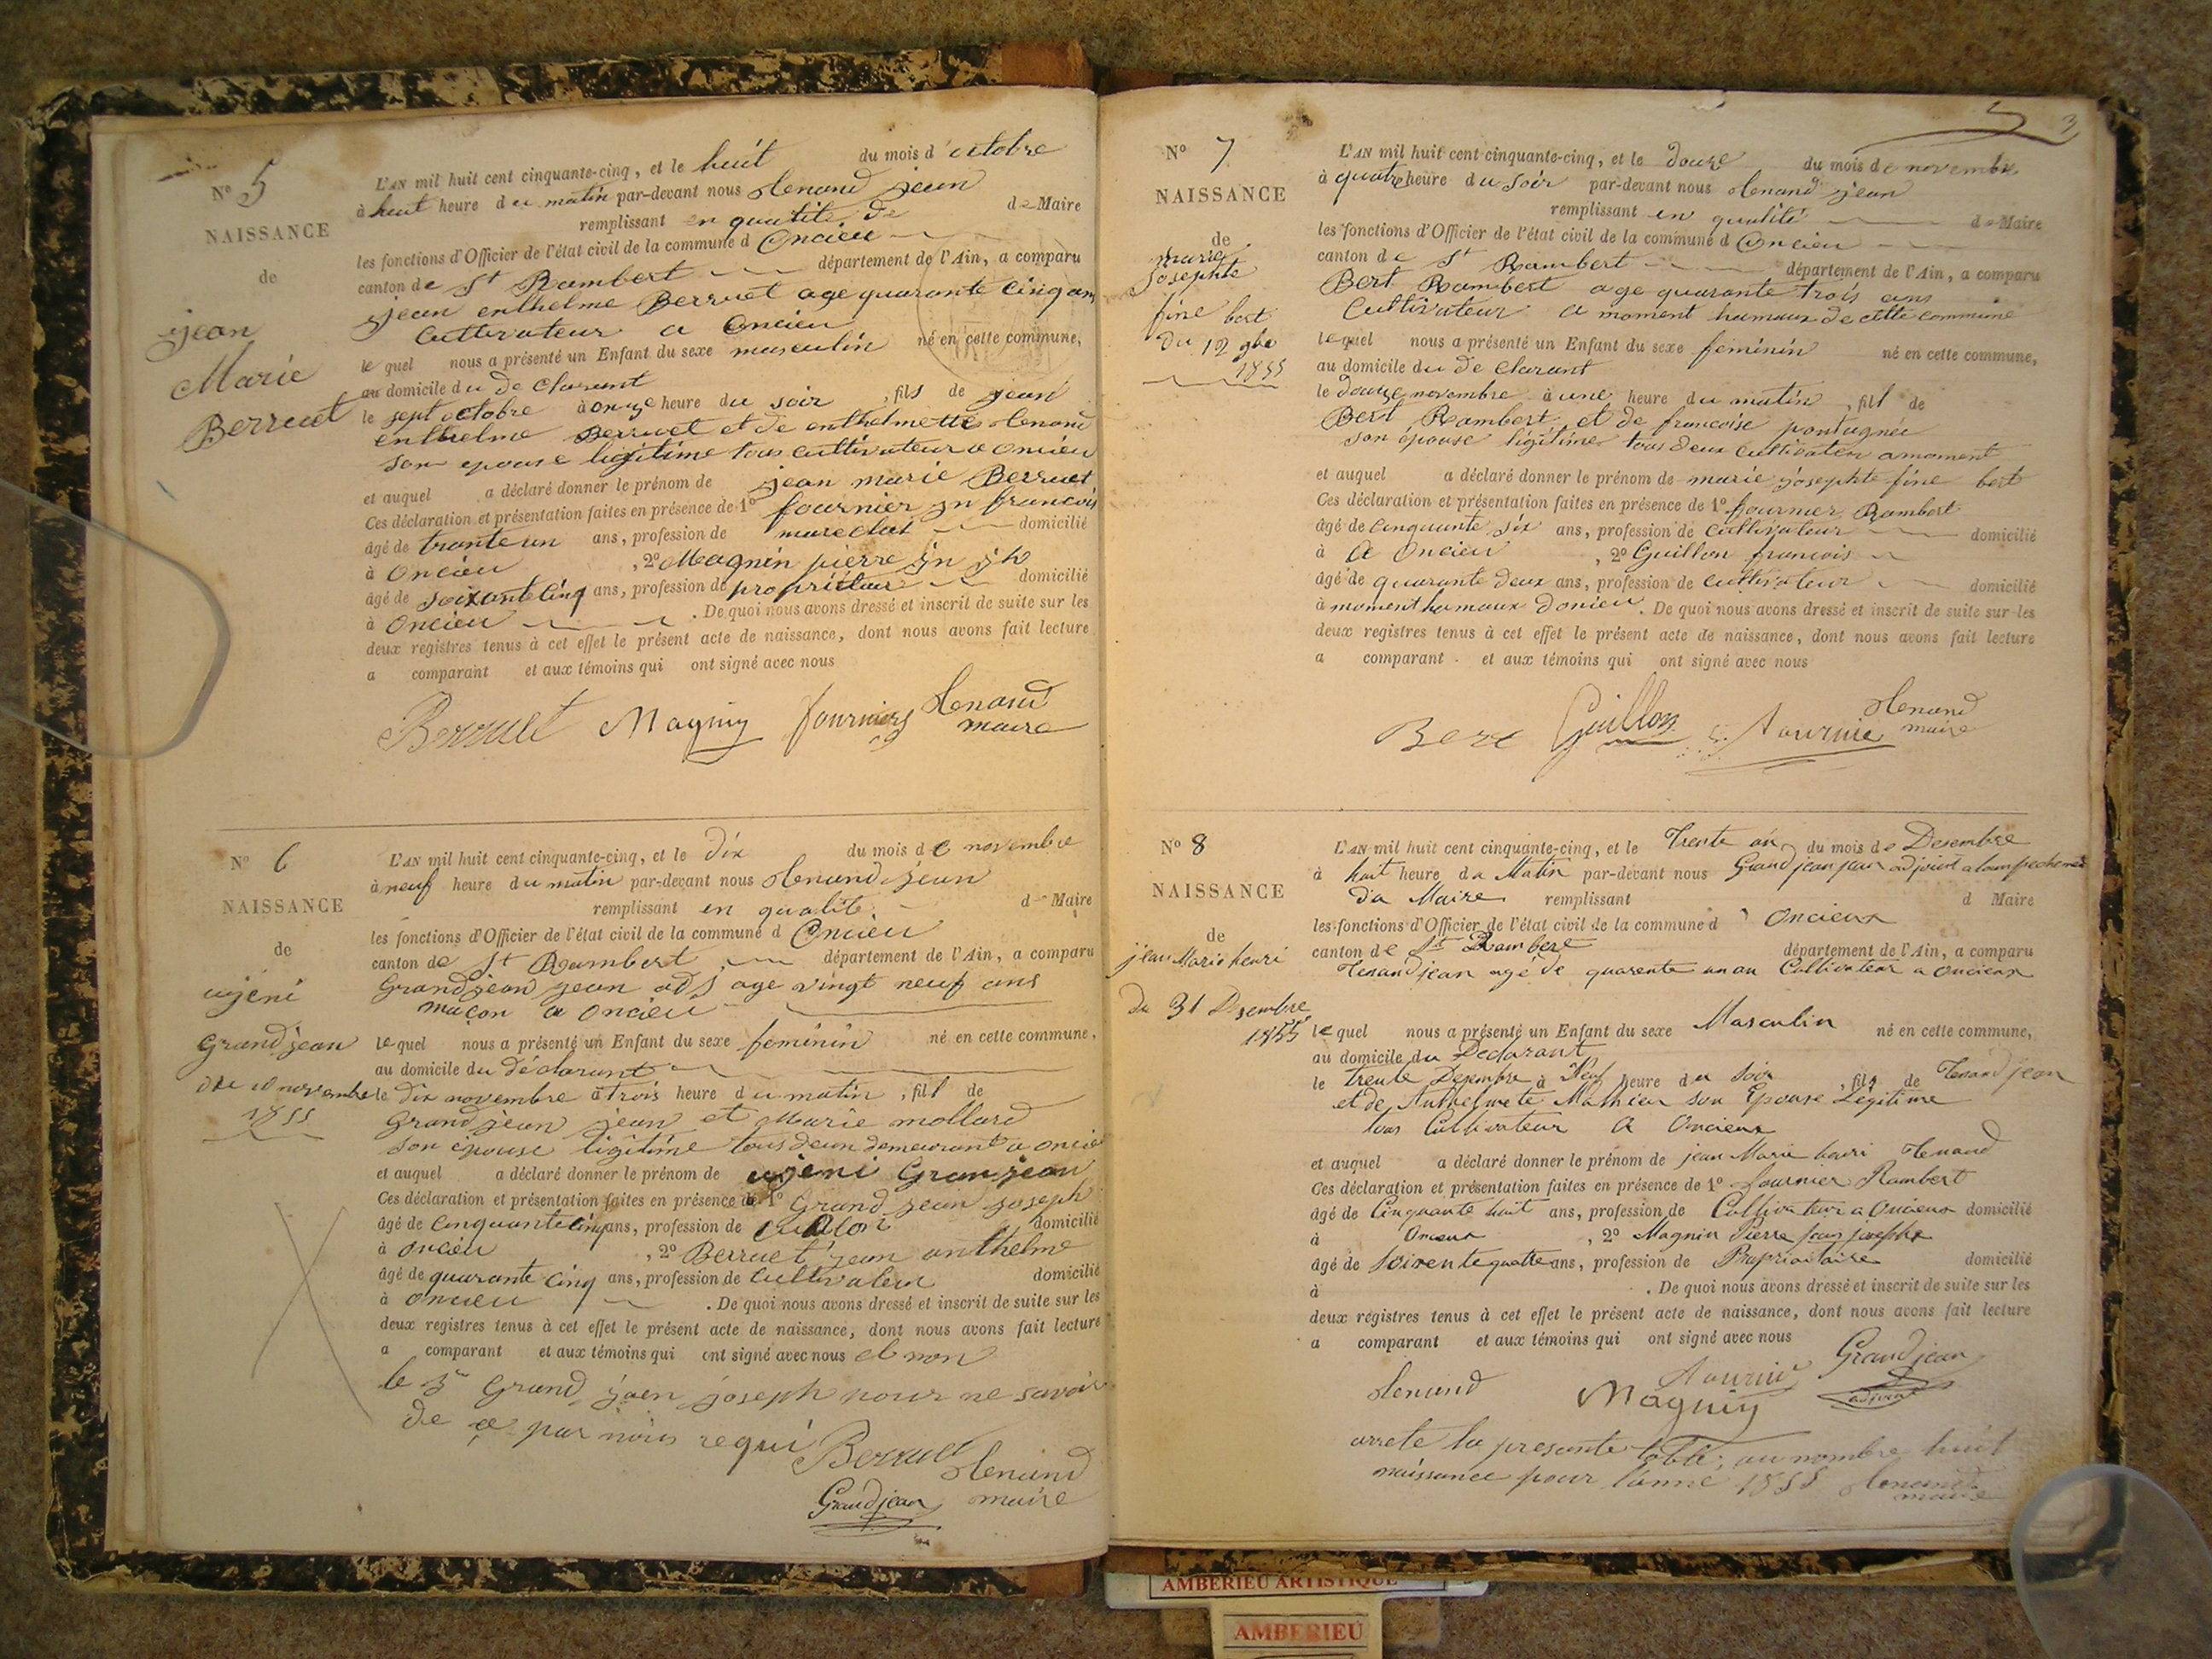 N° 5
NAISSANCE
de
jean
Marie
Berruet
L'AN mil huit cent cinquante-cinq, et le huit du mois d'octobre
à huit heure du matin par-devant nous tenand jean
remplissant en qualité de de Maire
les fonctions d'Officier de l'état civil de la commune d Oncieu
canton de St Rambert département de l'Ain, a comparu
jean enthelme Berruet age quarante cinq ans
Cultivateur a Oncieu
le quel nous a présenté un Enfant du sexe masculin né en cette commune,
au domicile du de Clarent
le sept octobre à onze heure du soir, fils de jean
enthelme Berruet et de enthelmette tenand
son epouse legitime tous cultivateur a oncieu
et auquel a déclaré donner le prénom de jean marie Berruet
Ces déclaration et présentation faites en présence de 1° fournier jn francois
âgé de trante un ans, profession de marechal domicilié
à Oncieu, 2° Magnin pierre jn jh
âgé de soixante cinq ans, profession de propriétaire domicilié
à Oncieu. De quoi nous avons dressé et inscrit de suite sur les
deux registres tenus à cet effet le présent acte de naissance, dont nous avons fait lecture
a comparant et aux témoins qui ont signé avec nous
Berruet Magnin fournier tenand
maire
N° 6
NAISSANCE
de
ujéni
Grandjean
du 10 novembre
1855
L'AN mil huit cent cinquante-cinq, et le dix du mois de novembre
à neuf heure du matin par-devant nous tenand jean
remplissant en qualité de Maire
les fonctions d'Officier de l'état civil de la commune d Oncieu
canton de St Rambert département de l'Ain, a comparu
Grandjean jean adj age vingt neuf ans
maçon a oncieu
le quel nous a présenté un Enfant du sexe feminin né en cette commune,
au domicile du déclarent
le dix novembre à trois heure du matin, fill de
Grandjean jean et Marie mollard
son épouse légitime tous deux demeurant a oncieu
et auquel a déclaré donner le prénom de ujeni Granjean
Ces déclaration et présentation faites en présence de 1° Grand jean joseph
âgé de cinquante cinq ans, profession de domicilié
à oncieu, 2° Berruet jean anthelme
âgé de quarante cinq ans, profession de cultivateur domicilié
à oncieu. De quoi nous avons dressé et inscrit de suite sur les
deux registres tenus à cet effet le présent acte de naissance, dont nous avons fait lecture
a comparant et aux témoins qui ont signé avec nous et non
le Sr Grand jaen joseph pour ne savoir
de ce par nous requi Berruet tenand
Grandjean maire
3
N° 7
NAISSANCE
de
marie
josephte
fine bert
du 12 9bre
1855
L'AN mil huit cent cinquante-cinq, et le douze du mois de novembre
à quatre heure du soir par-devant nous tenand jean
remplissant en qualité de Maire
les fonctions d'Officier de l'état civil de la commune d Oncieu
canton de St Rambert département de l'Ain, a comparu
Bert Rambert age quarante trois ans
Cultivateur a moment hamaux de cette commune
le quel nous a présenté un Enfant du sexe feminin né en cette commune,
au domicile du de clarant
le douze novembre à une heure du matin, fill de
Bert Rambert et de francoise pontagnée
son épouse légitime tous deux cultivateu a moment
et auquel a déclaré donner le prénom de marie josephte fine bert
Ces déclaration et présentation faites en présence de 1° fournier Rambert
âgé de cinquante six ans, profession de cultivateur domicilié
à a Oncieu, 2° Guillon francois
âgé de quarante deux ans, profession de cultivateur domicilié
à moment hamaux donieu. De quoi nous avons dressé et inscrit de suite sur les
deux registres tenus à cet effet le présent acte de naissance, dont nous avons fait lecture
a comparant et aux témoins qui ont signé avec nous
Bert Guillon Fournie tenand
maire
N° 8
NAISSANCE
de
jean Marie henri
du 31 Desembre
1855
L'AN mil huit cent cinquante-cinq, et le Trente un du mois de Desembre
à huit heure du Matin par-devant nous Grandjean jean adjoint a lampechement
du Maire remplissant d Maire
les fonctions d'Officier de l'état civil de la commune d Oncieux
canton de St Rambert département de l'Ain, a comparu
Tenand jean agé de quarente un an Cultivateur a Oncieux
le quel nous a présenté un Enfant du sexe Masculin né en cette commune,
au domicile du Declarant
le trente Desembre à Neuf heure du Soir, fils de Tenand jean
et de Anthelmete Mathieu son Epouse Légitime
tous Cultivateur A Oncieux
et auquel a déclaré donner le prénom de jean Marie henri Tenand
Ces déclaration et présentation faites en présence de 1° fournier Rambert
âgé de Cinquante huit ans, profession de Cultivateur a Oncieux domicilié
à Oncieux, 2° Magnin Pierre jean joseph
âgé de soixente quatre ans, profession de Propriaitaire domicilié
à. De quoi nous avons dressé et inscrit de suite sur les
deux registres tenus à cet effet le présent acte de naissance, dont nous avons fait lecture
a comparant et aux témoins qui ont signé avec nous
tenand Magnin Fournie Grandjean
adjoint
arrete la presante table, au nombre huit
naissance pour l'anné 1855 tenand
maire
AMBERIEU ARTISTIQUE
AMBERIEU